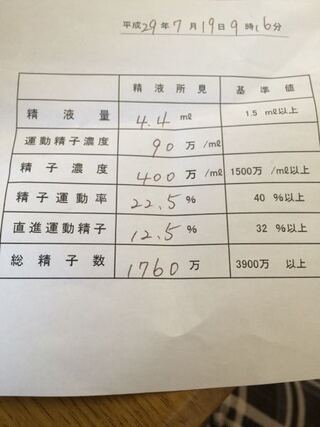 平成29年7月19日9時16分
精液所見 基準値
精液量 4.4 ml 1.5 ml以上
運動精子濃度 90万/ml
精子濃度 400万/ml 1500万/ml以上
精子運動率 22.5 % 40 %以上
直進運動精子 12.5 % 32 %以上
総精子数 1760万 3900万 以上